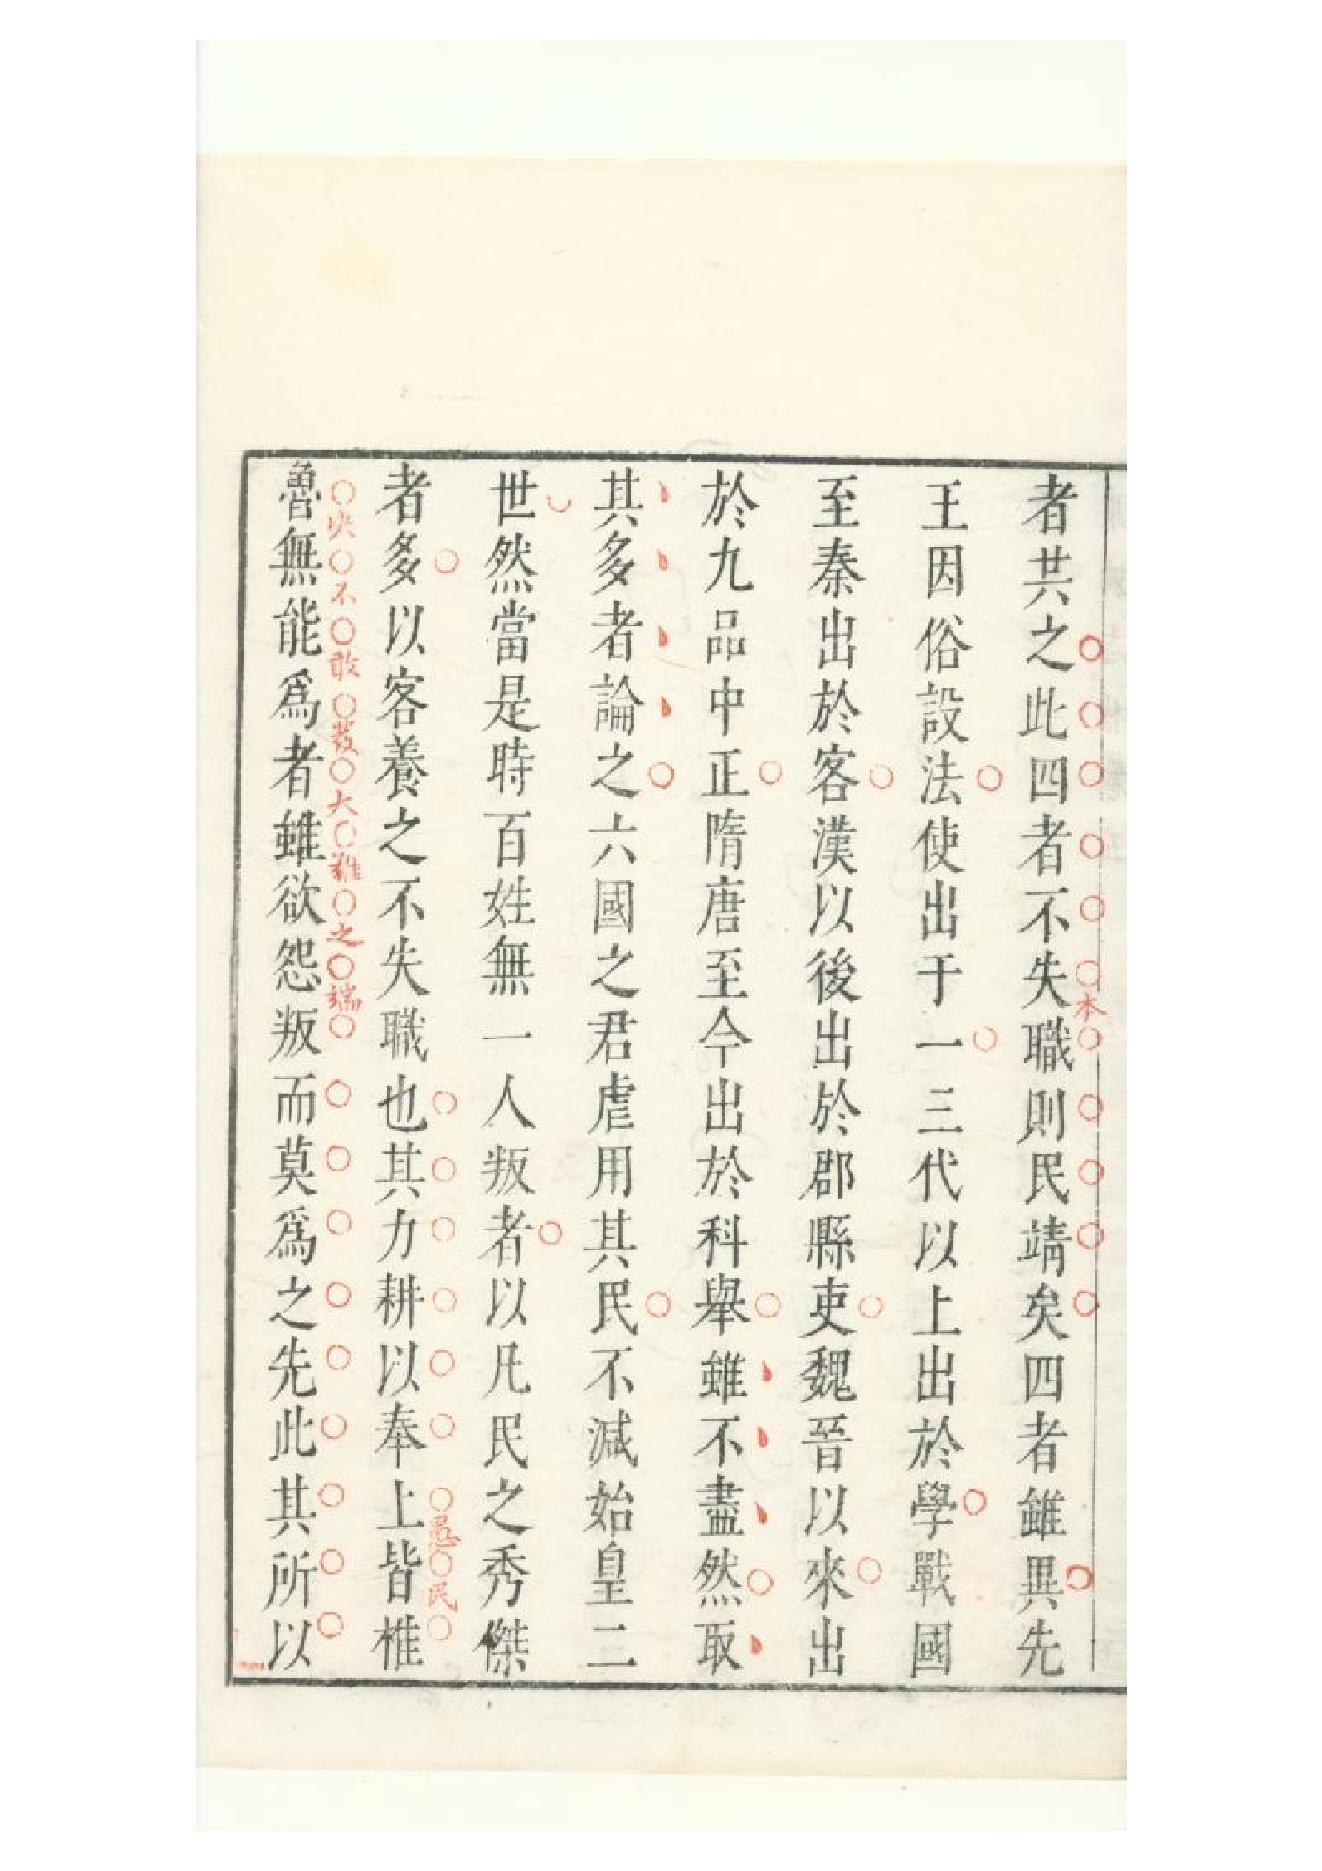 本
者共之此四者不失職則民靖矣四者雖異先
王因俗設法使出于一三代以上出於學戰國
至秦出於客漢以後出於郡縣吏魏晉以來出
於九品中正隋唐至今出於科舉雖不盡然取
其多者論之六國之君虐用其民不減始皇二
世然當是時百姓無一人叛者以凡民之秀傑
愚民
者多以客養之不失職也其力耕以奉上皆椎
不敢發大難之端
魯無能爲者雖欲怨叛而莫爲之先此其所以